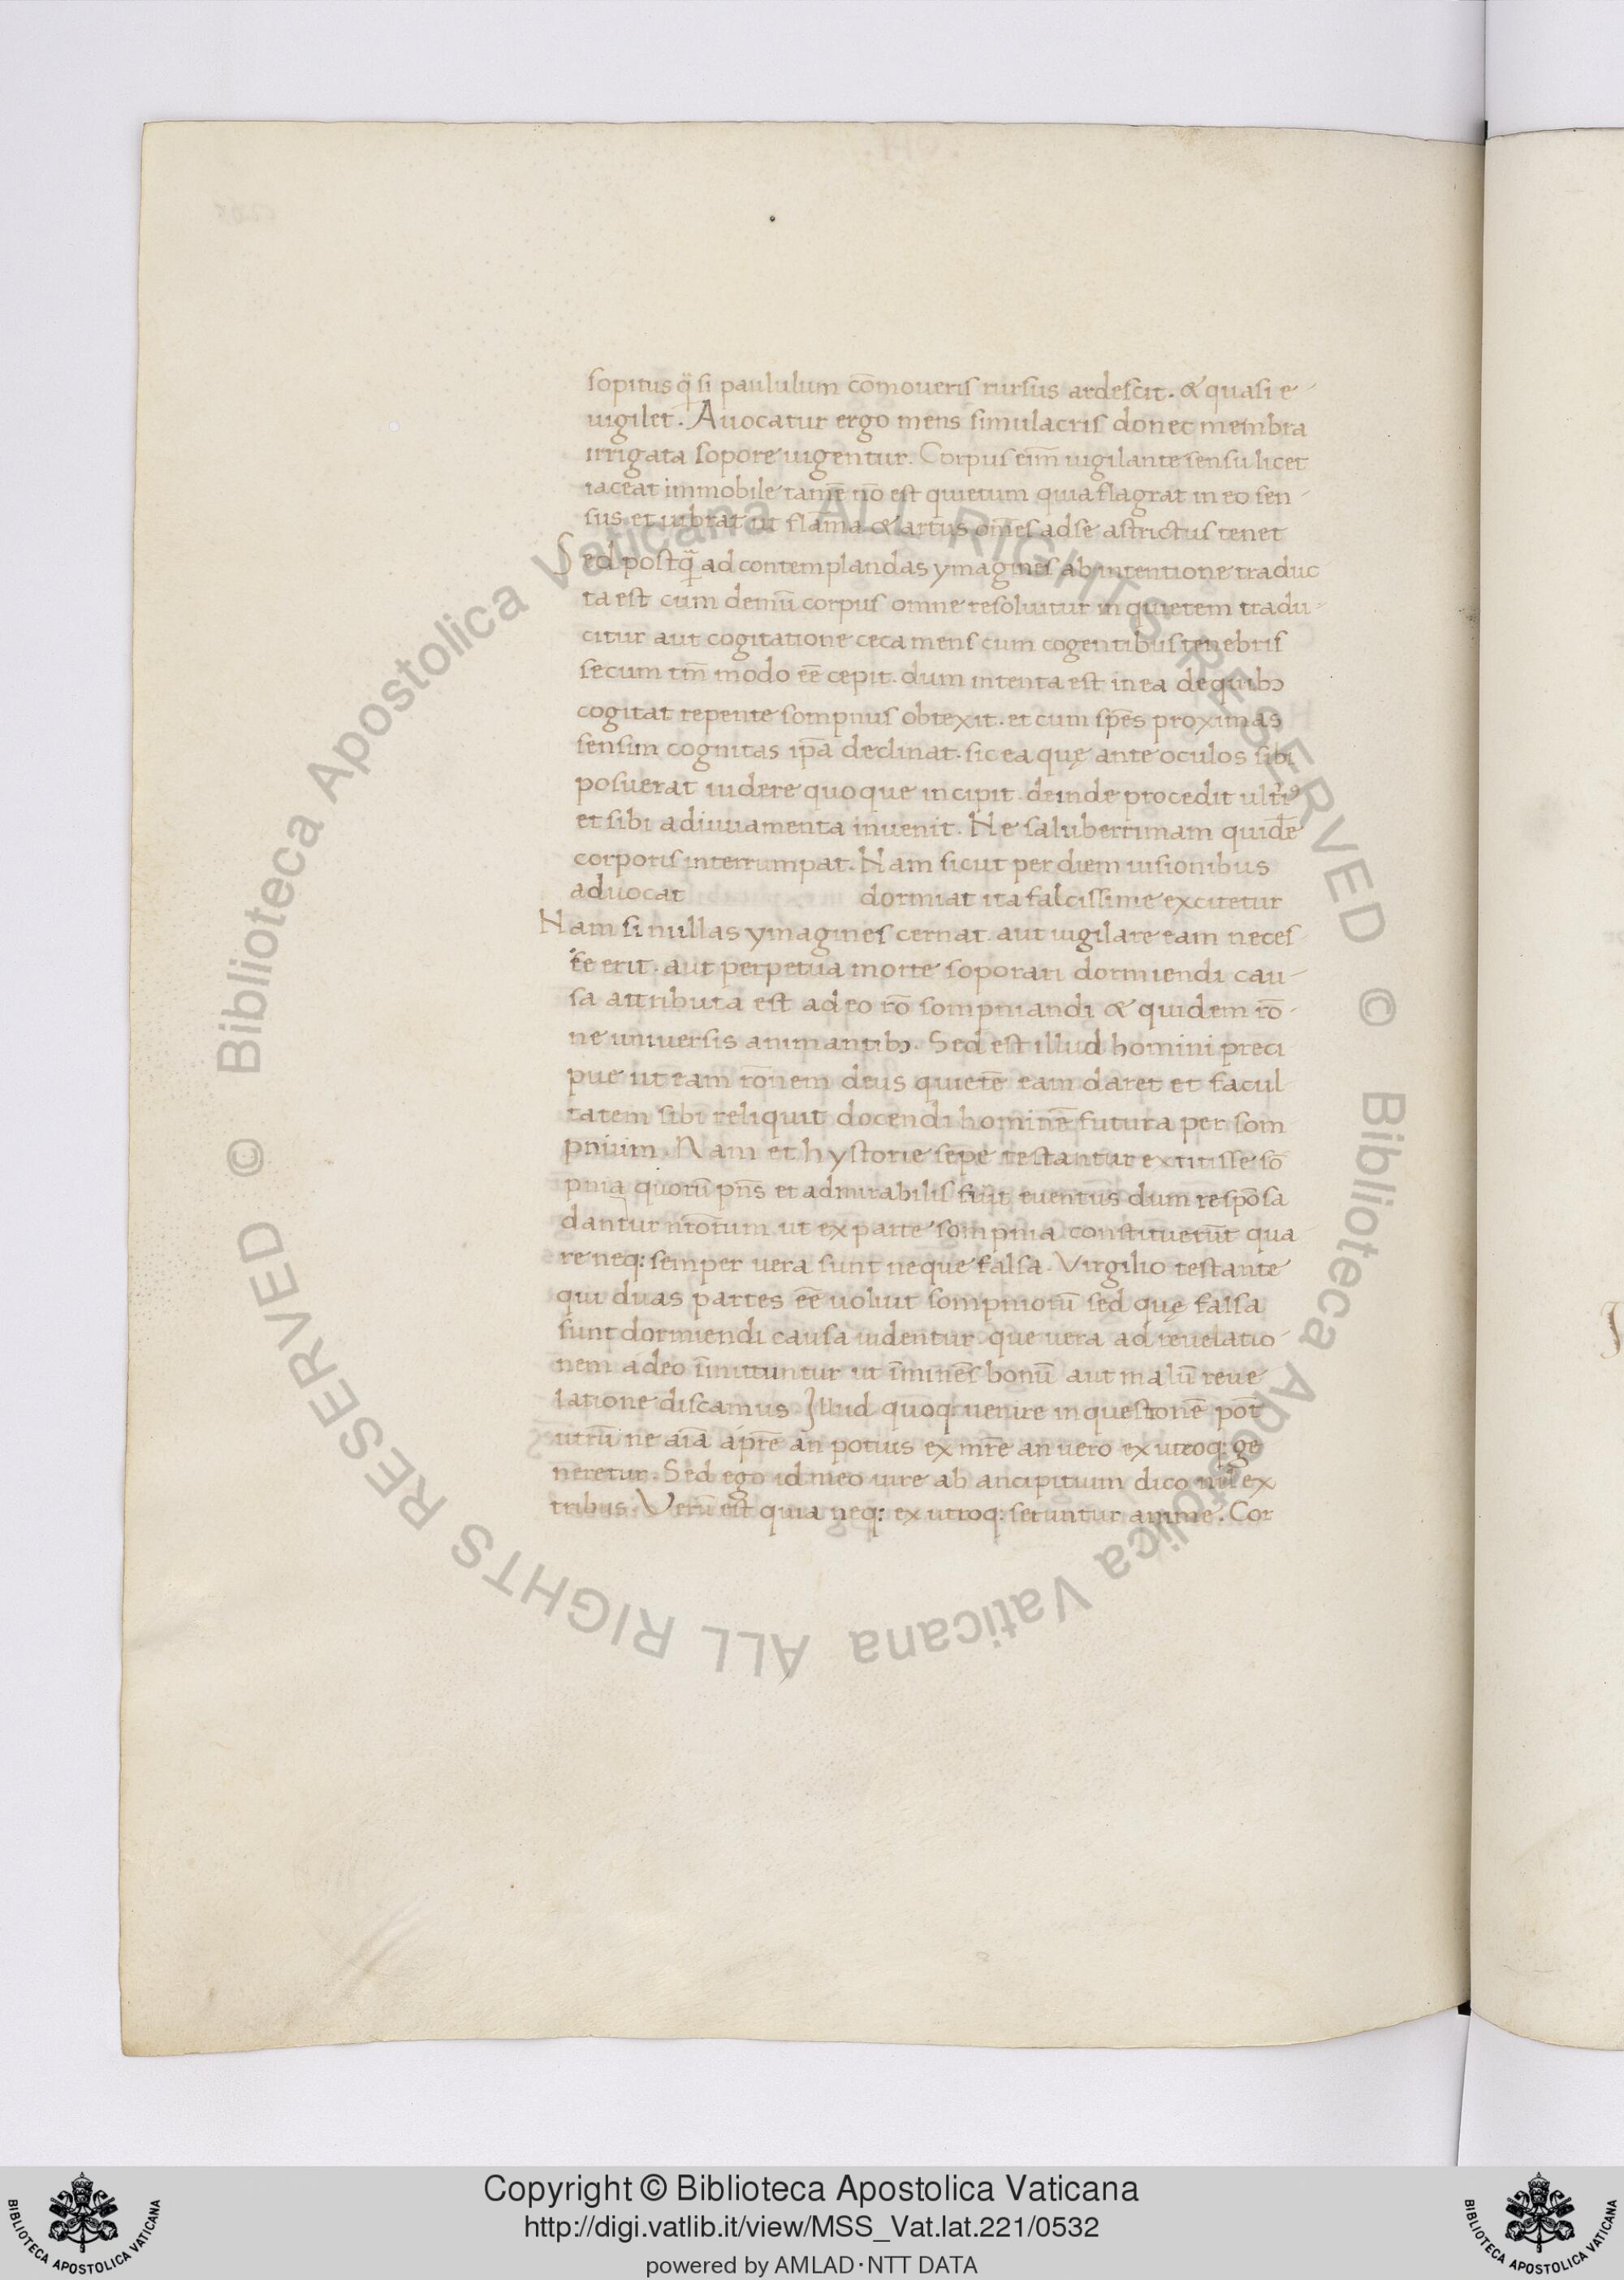 sopitus q̃ si paululum cōmoueris rursus ardescit. & quasi e-
uigilet. Auocatur ergo mens simulacris donec membra
irrigata sopore uigentur. Corpus eim̄ uigilante sensu licet
iaceat immobile tamē nō est quietum quia flagrat in eo sen-
sus et uibrat ut flāma & artus om̄es ad se astrictus tenet
Sed postq̃ ad contemplandas ymagines ab intentione traduc
ta est cum demū corpus omne resoluitur in quietem tradu-
citur aut cogitatione ceca mens cum cogentibus tenebris
secum tm̄ modo ēe cepit. dum intenta est in ea de quibꝫ
cogitat repente sompnus obtexit. et cum sp̄es proximas
sensim cognitas ip̄a declinat. sic ea quę ante oculos sibi
posuerat uidere quoque incipit. deinde procedit ult̄iꝰ
et sibi adiuuamenta inuenit. Ne saluberrimam quidē
corporis interrumpat. Nam sicut per diem uisionibus
aduocat dormiat ita falcissime excitetur
Nam si nullas ymagines cernat. aut uigilare eam neces
s̄e erit. aut perpetua morte soporari dormiendi cau-
sa attributa est a deo rō sompniandi & quidem rō-
ne uniuersis animantibꝫ. Sed est illud homini preci
pue ut eam rōnem deus quietē eam daret et facul
tatem sibi reliquit docendi hominē futura per som
pnium. Nam et hystorie sepe testantur extitisse sō
pnia quorū pn̄s et admirabilis fuit euentus dum respōsa
dantur nr̄orum ut ex parte sompnia constituerūt qua
re neq: semper uera sunt neque falsa. Virgilio testante
qui duas partes ēe uoluit sompniorū sed quę falsa
sunt dormiendi causa uidentur que uera ad reuelatio-
nem a deo īmittuntur ut īminēs bonū aut malū reue
latione discamus. Illud quoq: uenire in questionē pōt
utrū ne aīa a pr̄e an potius ex mr̄e an uero ex utroq: ge
neretur. Sed ego id meo iure ab ancipitium dico nil̄ ex
tribus. Verū est quia neq: ex utroq: seruntur anime. Cor
Copyright © Biblioteca Apostolica Vaticana
http://digi.vatlib.it/view/MSS_Vat.lat.221/0532
powered by AMLAD·NTT DATA